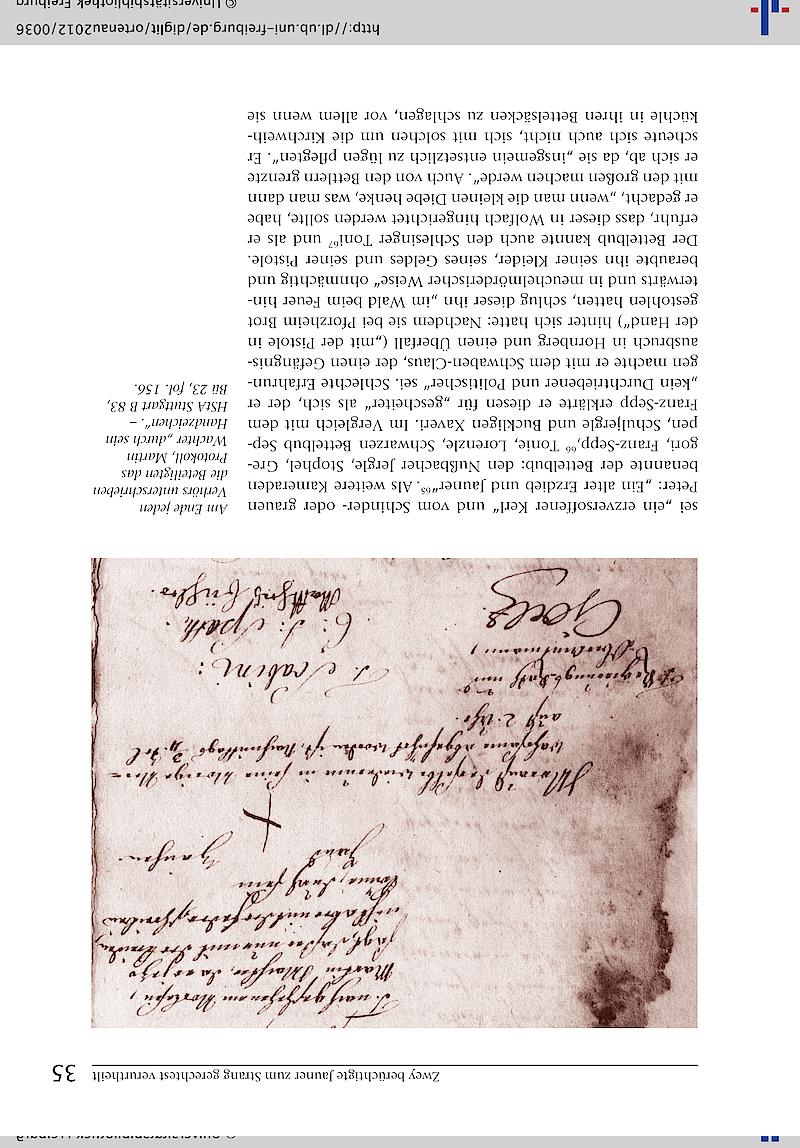 Zwey berüchtigte Jauner zum Strang gerechtest verurtheilt 35
Martin
sein
Hand Zeichen
auf 2. Uhr.
T. Scabini:
C: J: Spath.
Goelz
Am Ende jeden
Verhörs unterschrieben
die Beteiligten das
Protokoll, Martin
Wachter „durch sein
Handzeichen“. –
HStA Stuttgart B 83,
Bü 23, fol. 156.
sei „ein erzversoffener Kerl“ und vom Schinder- oder grauen
Peter: „Ein alter Erzdieb und Jauner“⁶⁵. Als weitere Kameraden
benannte der Bettelbub: den Nußbacher Jergle, Stophel, Gre-
gori, Franz-Sepp,⁶⁶ Tonie, Lorenzle, Schwarzen Bettelbub Sep-
pen, Schuljergle und Buckligen Xaveri. Im Vergleich mit dem
Franz-Sepp erklärte er diesen für „gescheiter“ als sich, der er
„kein Durchtriebener und Politischer“ sei. Schlechte Erfahrun-
gen machte er mit dem Schwaben-Claus, der einen Gefängnis-
ausbruch in Hornberg und einen Überfall („mit der Pistole in
der Hand“) hinter sich hatte: Nachdem sie bei Pforzheim Brot
gestohlen hatten, schlug dieser ihn „im Wald beim Feuer hin-
terwärts und in meuchelmörderischer Weise“ ohnmächtig und
beraubte ihn seiner Kleider, seines Geldes und seiner Pistole.
Der Bettelbub kannte auch den Schlesinger Toni⁶⁷ und als er
erfuhr, dass dieser in Wolfach hingerichtet werden sollte, habe
er gedacht, „wenn man die kleinen Diebe henke, was man dann
mit den großen machen werde“. Auch von den Bettlern grenzte
er sich ab, da sie „insgemein entsetzlich zu lügen pflegten“. Er
scheute sich auch nicht, sich mit solchen um die Kirchweih-
küchle in ihren Bettelsäcken zu schlagen, vor allem wenn sie
http://dl.ub.uni-freiburg.de/diglit/ortenau2012/0036
© Universitätsbibliothek Freiburg